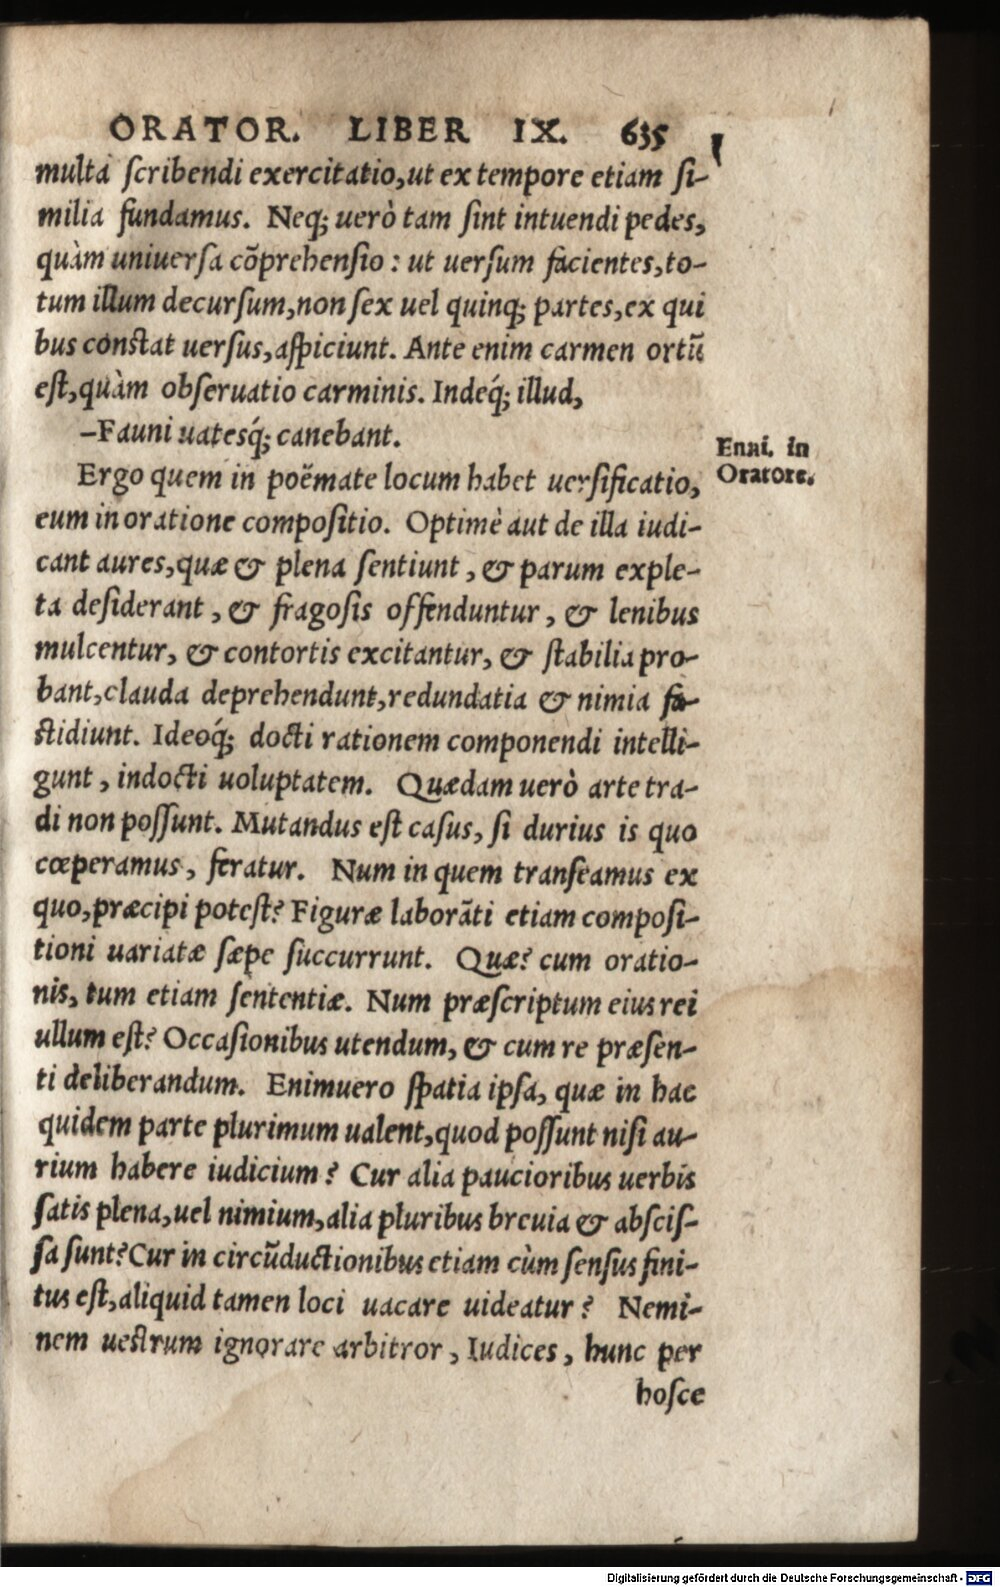 ORATOR. LIBER IX. 635
multa ſcribendi exercitatio, ut ex tempore etiam ſi-
milia fundamus. Neq; uerò tam ſint intuendi pedes,
quàm uniuerſa cõprehenſio: ut uerſum facientes, to-
tum illum decurſum, non ſex uel quinq; partes, ex qui
bus conſtat uerſus, aſpiciunt. Ante enim carmen ortũ
eſt, quàm obſeruatio carminis. Indeq́; illud,
–Fauni uatesq́; canebant.
Enni. in
Oratore.
Ergo quem in poëmate locum habet uerſificatio,
eum in oratione compoſitio. Optimè aut de illa iudi-
cant aures, quæ & plena ſentiunt, & parum exple-
ta deſiderant, & fragoſis offenduntur, & lenibus
mulcentur, & contortis excitantur, & ſtabilia pro-
bant, clauda deprehendunt, redundatia & nimia fa-
ſtidiunt. Ideoq́; docti rationem componendi intelli-
gunt, indocti uoluptatem. Quædam uerò arte tra-
di non poſſunt. Mutandus eſt caſus, ſi durius is quo
cœperamus, feratur. Num in quem tranſeamus ex
quo, præcipi poteſt? Figuræ laborãti etiam compoſi-
tioni uariatæ ſæpe ſuccurrunt. Quæ? cum oratio-
nis, tum etiam ſententiæ. Num præſcriptum eius rei
ullum eſt? Occaſionibus utendum, & cum re præſen-
ti deliberandum. Enimuero ſpatia ipſa, quæ in hac
quidem parte plurimum ualent, quod poſſunt niſi au-
rium habere iudicium? Cur alia paucioribus uerbis
ſatis plena, uel nimium, alia pluribus breuia & abſciſ-
ſa ſunt? Cur in circũductionibus etiam cùm ſenſus fini-
tus eſt, aliquid tamen loci uacare uideatur? Nemi-
nem ueſtrum ignorare arbitror, Iudices, hunc per
hoſce
Digitalisierung gefördert durch die Deutsche Forschungsgemeinschaft - DFG